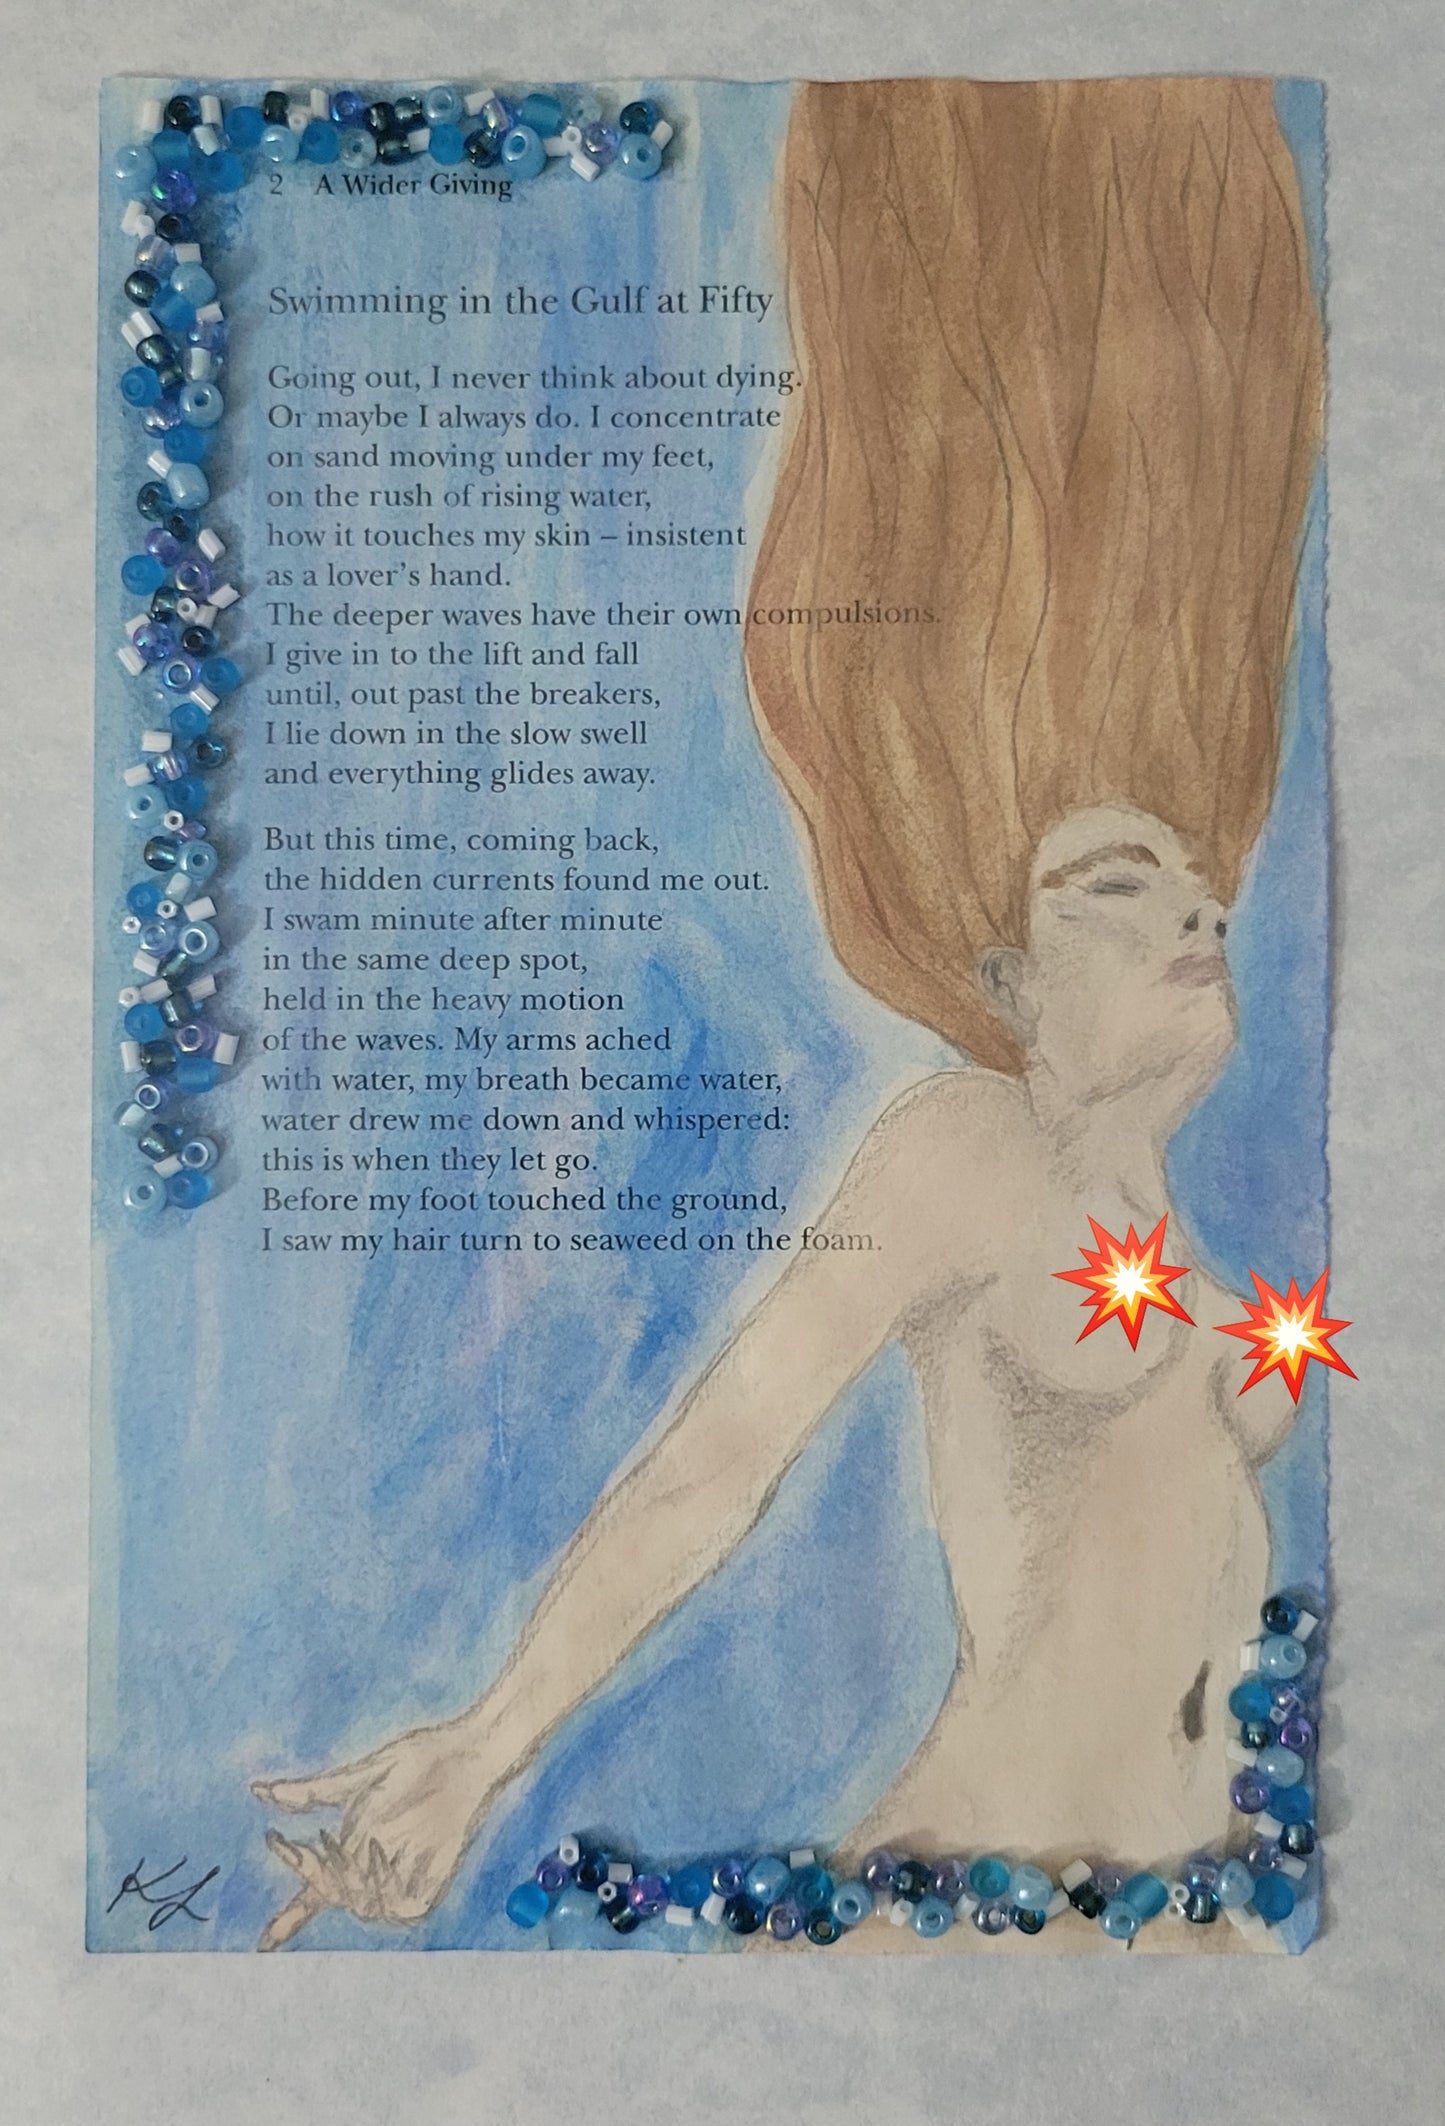 2 A Wider Giving
Swimming in the Gulf at Fifty
Going out, I never think about dying.
Or maybe I always do. I concentrate
on sand moving under my feet,
on the rush of rising water,
how it touches my skin – insistent
as a lover's hand.
The deeper waves have their own compulsions.
I give in to the lift and fall
until, out past the breakers,
I lie down in the slow swell
and everything glides away.
But this time, coming back,
the hidden currents found me out.
I swam minute after minute
in the same deep spot,
held in the heavy motion
of the waves. My arms ached
with water, my breath became water,
water drew me down and whispered:
this is when they let go.
Before my foot touched the ground,
I saw my hair turn to seaweed on the foam.
KL